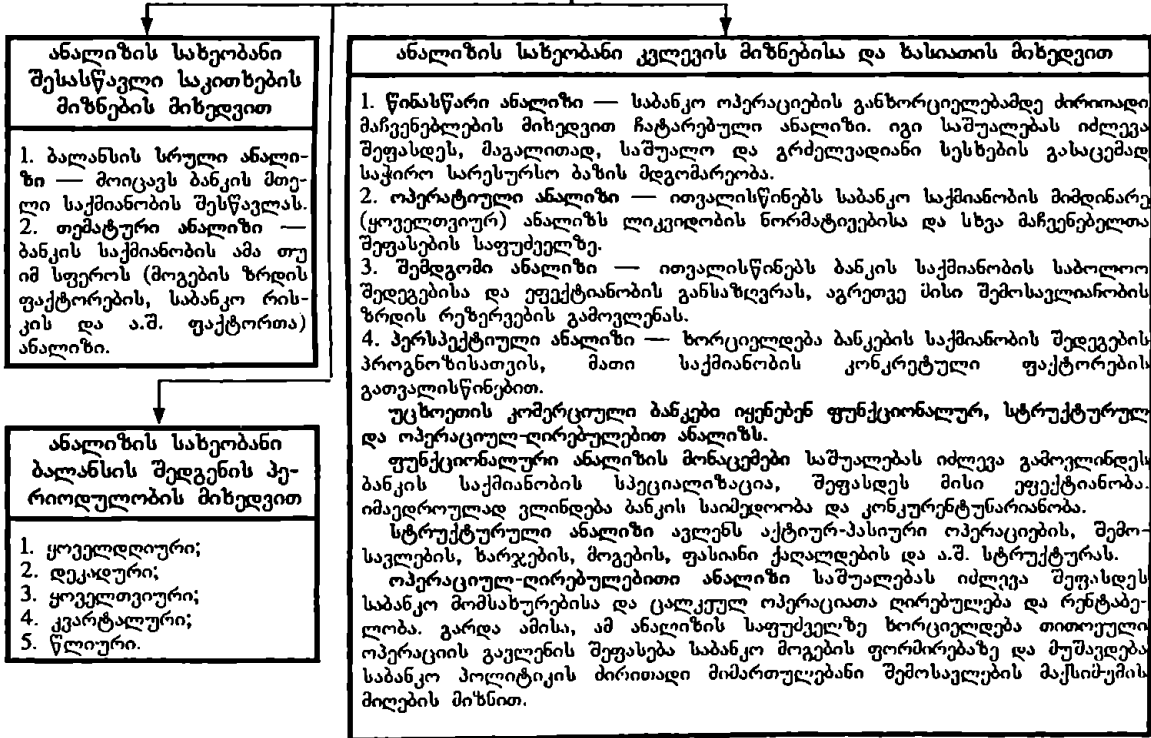 ანალიზის სახეობანი
შესასწავლი საკითხების
მიზნების მიხედვით
1. ბალანსის სრული ანალი-
ზი — მოიცავს ბანკის მთე-
ლი საქმიანობის შესწავლას.
2. თემატური ანალიზი —
ბანკის საქმიანობის ამა თუ
იმ სფეროს (მოგების ზრდის
ფაქტორების, საბანკო რის-
კის და ა.შ. ფაქტორთა)
ანალიზი.
ანალიზის სახეობანი
ბალანსის შედგენის პე-
რიოდულობის მიხედვით
1. ყოველდღიური;
2. დეკადური;
3. ყოველთვიური;
4. კვარტალური;
5. წლიური.
ანალიზის სახეობანი კვლევის მიზნებისა და ხასიათის მიხედვით
1. წინასწარი ანალიზი — საბანკო ოპერაციების განხორციელებამდე ძირითადი
მაჩვენებლების მიხედვით ჩატარებული ანალიზი. იგი საშუალებას იძლევა
შეფასდეს, მაგალითად, საშუალო და გრძელვადიანი სესხების გასაცემად
საჭირო სარესურსო ბაზის მდგომარეობა.
2. ოპერატიული ანალიზი — ითვალისწინებს საბანკო საქმიანობის მიმდინარე
(ყოველთვიურ) ანალიზს ლიკვიდობის ნორმატივებისა და სხვა მაჩვენებელთა
შეფასების საფუძველზე.
3. შემდგომი ანალიზი — ითვალისწინებს ბანკის საქმიანობის საბოლოო
შედეგებისა და ეფექტიანობის განსაზღვრას, აგრეთვე მისი შემოსავლიანობის
ზრდის რეზერვების გამოვლენას.
4. პერსპექტიული ანალიზი — ხორციელდება ბანკების საქმიანობის შედეგების
პროგნოზისათვის, მათი საქმიანობის კონკრეტული ფაქტორების
გათვალისწინებით.
უცხოეთის კომერციული ბანკები იყენებენ ფუნქციონალურ, სტრუქტურულ
და ოპერაციულ-ღირებულებით ანალიზს.
ფუნქციონალური ანალიზის მონაცემები საშუალებას იძლევა გამოვლინდეს
ბანკის საქმიანობის სპეციალიზაცია, შეფასდეს მისი ეფექტიანობა.
იმავდროულად ვლინდება ბანკის საიმედოობა და კონკურენტუნარიანობა.
სტრუქტურული ანალიზი ავლენს აქტიურ-პასიური ოპერაციების, შემო-
სავლების, ხარჯების, მოგების, ფასიანი ქაღალდების და ა.შ. სტრუქტურას.
ოპერაციულ-ღირებულებითი ანალიზი საშუალებას იძლევა შეფასდეს
საბანკო მომსახურებისა და ცალკეულ ოპერაციათა ღირებულება და რენტაბე-
ლობა. გარდა ამისა, ამ ანალიზის საფუძველზე ხორციელდება თითოეული
ოპერაციის გავლენის შეფასება საბანკო მოგების ფორმირებაზე და მუშავდება
საბანკო პოლიტიკის ძირითადი მიმართულებანი შემოსავლების მაქსიმუმის
მიღების მიზნით.